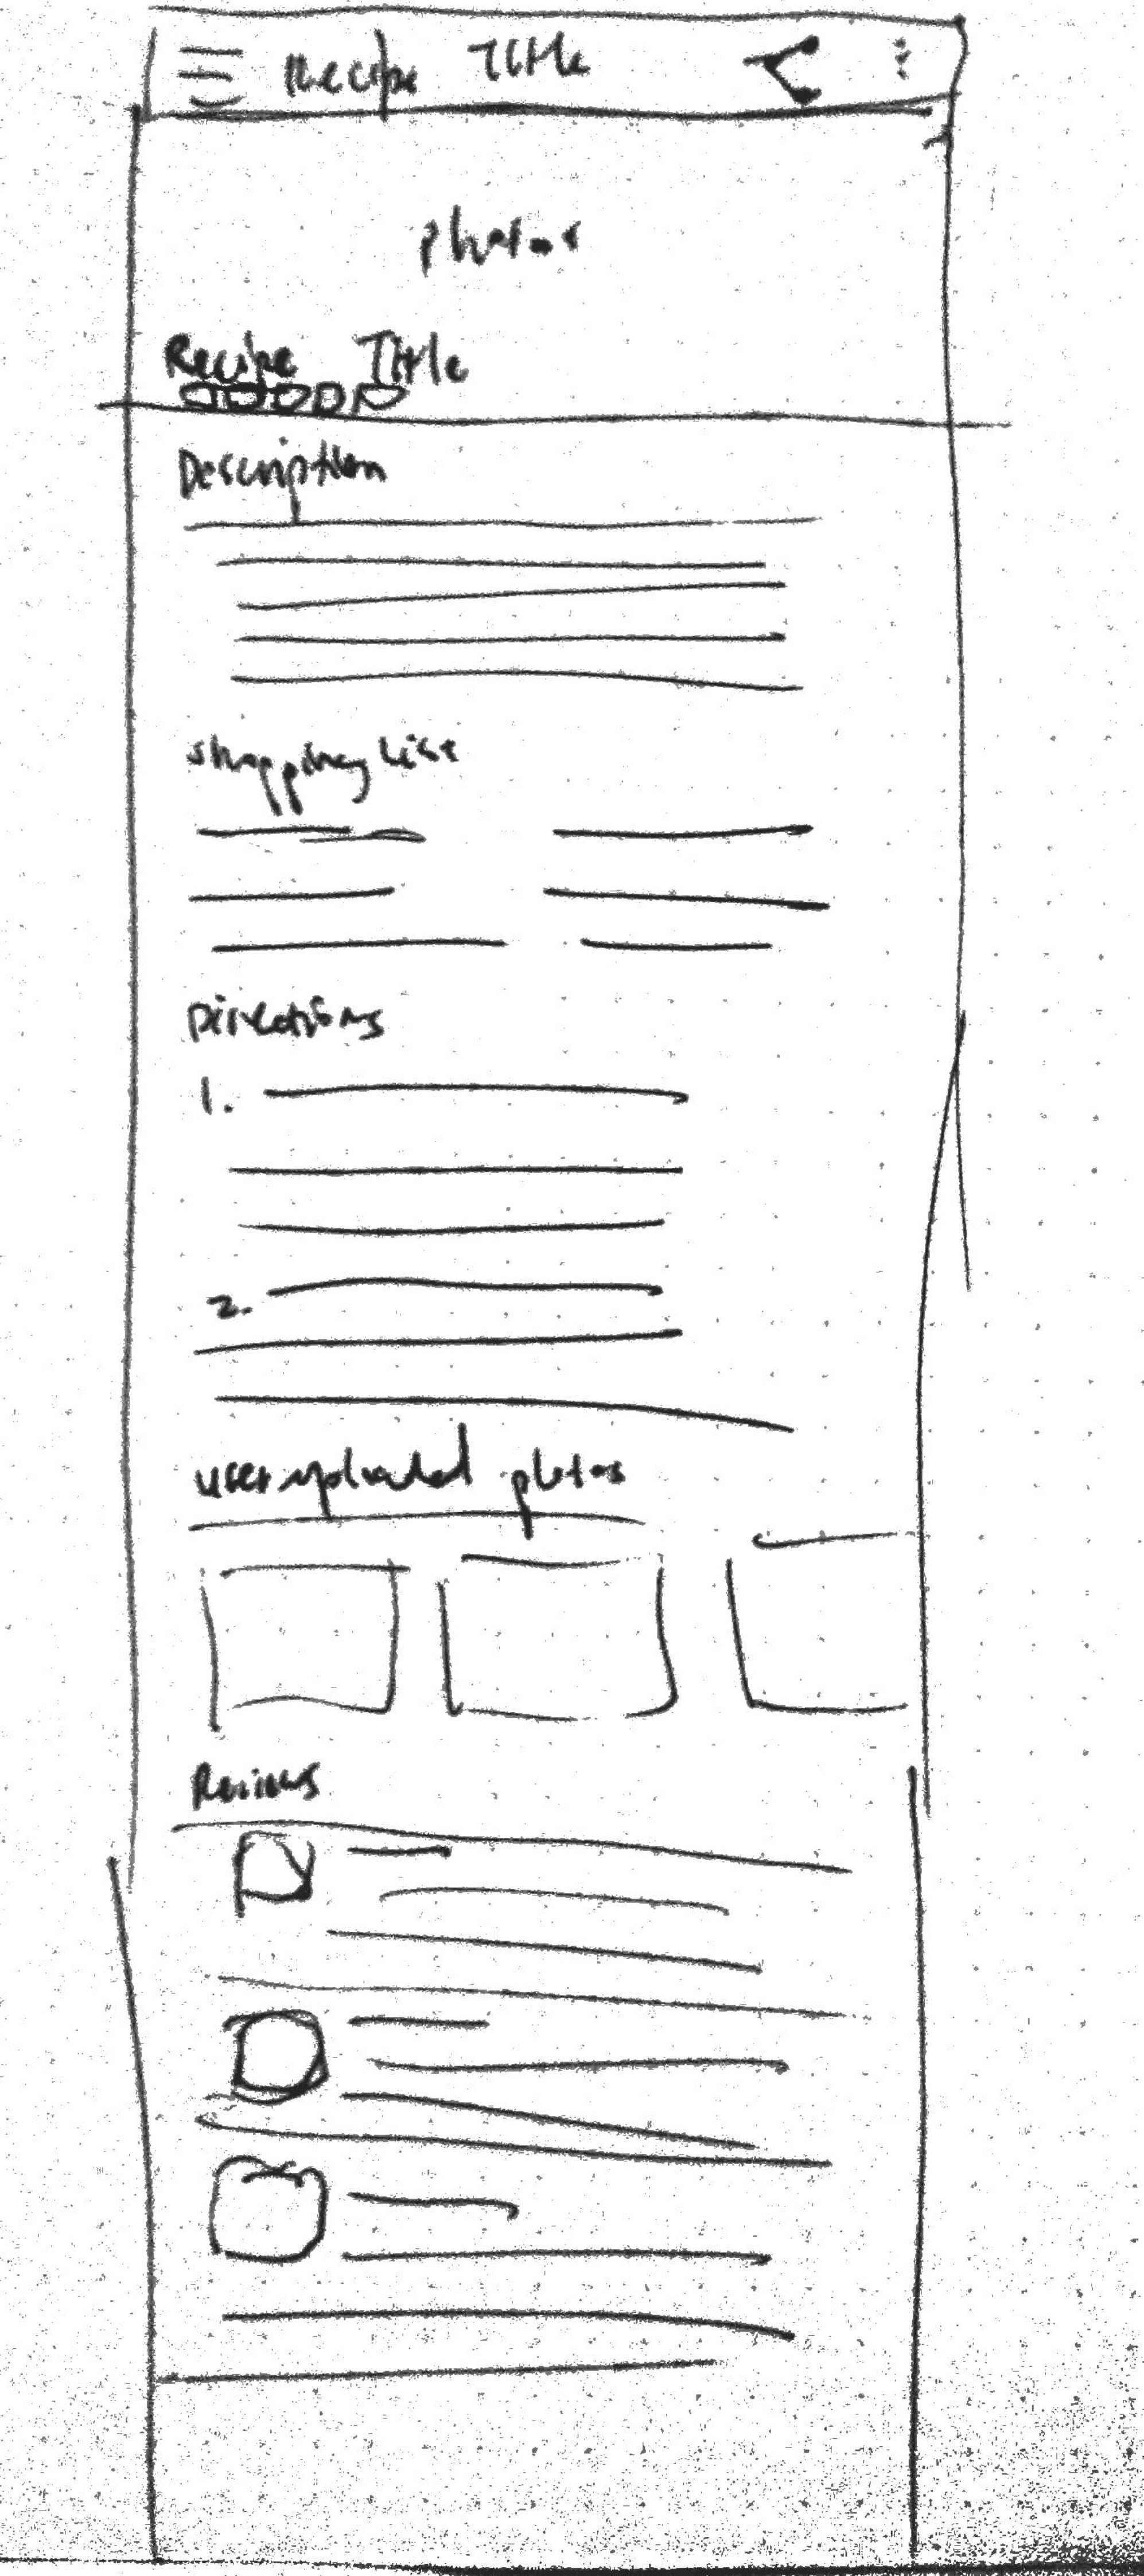 Recipe Title
photos
Recipe Title
Description
shopping list
Directions
1.
2.
user uploaded photos
Reviews